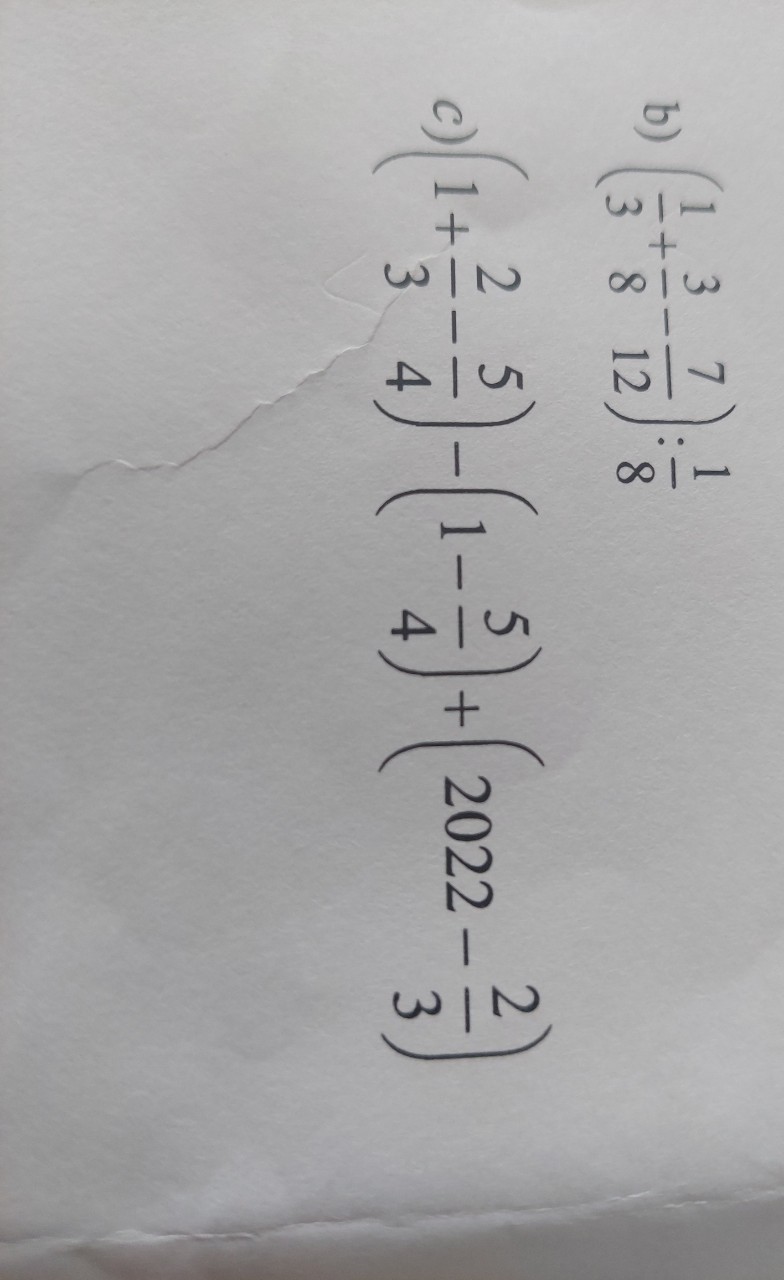 b) (1/3 + 3/8 − 7/12) : 1/8
c) (1 + 2/3 − 5/4) − (1 − 5/4) + (2022 − 2/3)